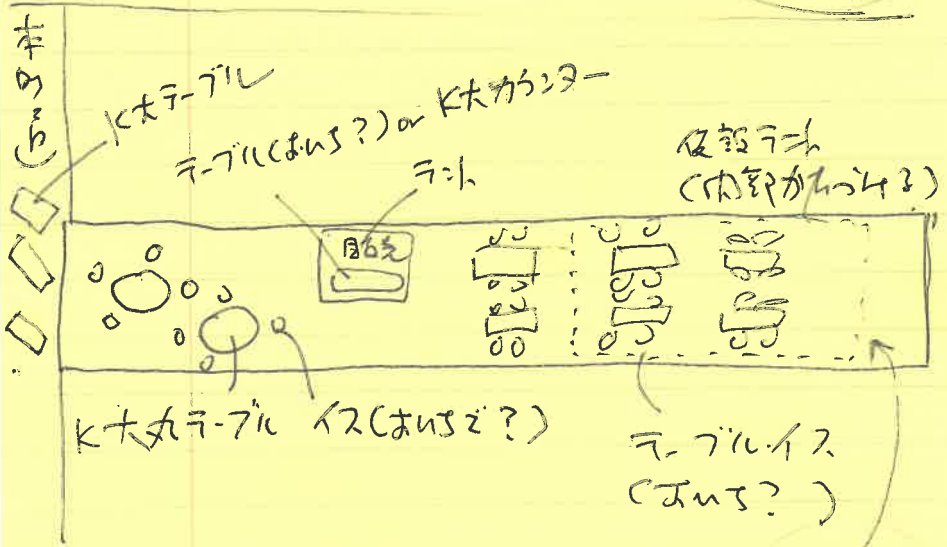 本の
K大テーブル
テーブル(おいち?) or K大カウンター
テント
仮設テント
(内部かたづける)
K大丸テーブル イス(おいちで?)
テーブル・イス
(おいち?)